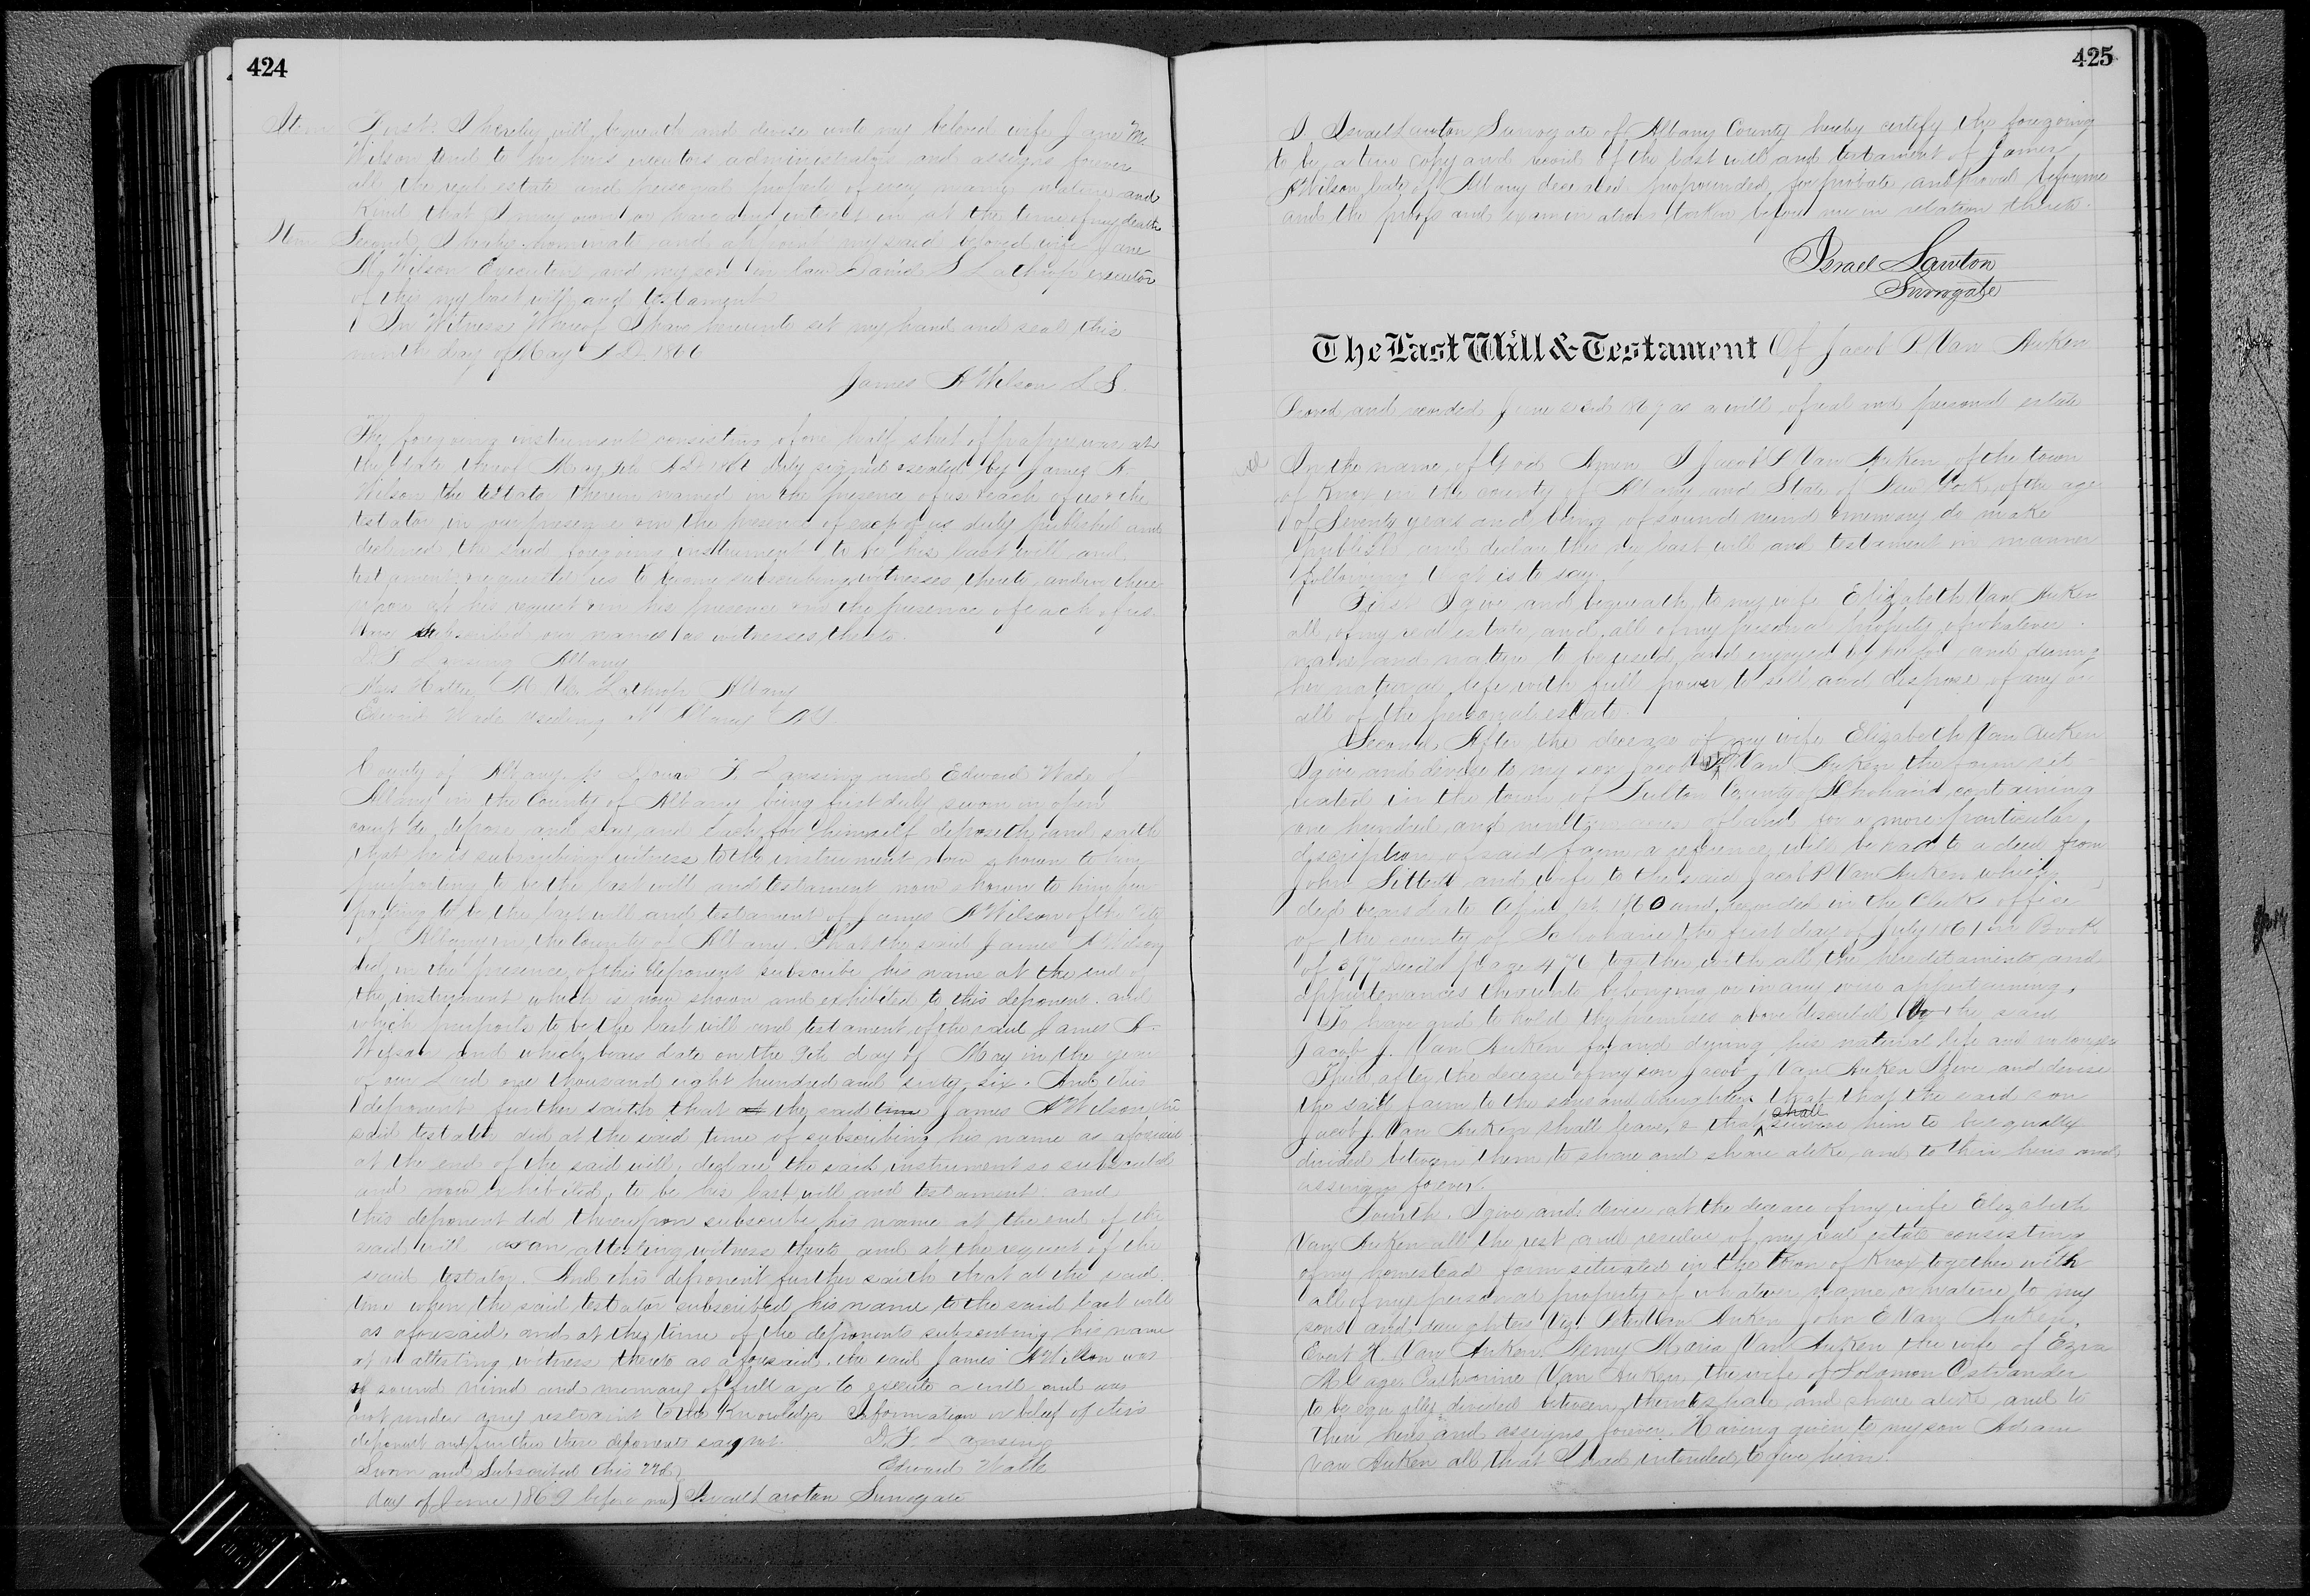 424
Item First. I hereby will, bequeath and devise unto my beloved wife Jane M.
Wilson and to her heirs executors administrators and assigns forever
all the real estate and personal property of every name nature and
kind that I may own or have any interest in at the time of my death
Item Second, I hereby nominate and appoint my said beloved wife Jane
M. Wilson Executrix and my son in law David S Lathrop executor
of this my last will and testament
In Witness Whereof I have hereunto set my hand and seal this
ninth day of May A D. 1866
James A Wilson L S.
The foregoing instrument consisting of one half sheet of paper was at
the date thereof May 9th AD 1866 duly signed & sealed by James A.
Wilson the testator therein named in the presence of us & each of us & the
testator in our presence & in the presence of each of us duly published and
declared the said foregoing instrument to be his last will and
testament & requested us to become subscribing witnesses thereto and we there
upon at his request & in his presence & in the presence of each of us
have subscribed our names as witnesses thereto.
D. F. Lansing Albany
Mrs Hattie M. W. Lathrop Albany
Edward Wade residing at Albany NY
County of Albany. ss F. Lansing and Edward Wade of
Albany in the County of Albany being first duly sworn in open
court do depose and say and each for himself deposeth and saith
that he is subscribing witness to the instrument now shown to him
purporting to be the last will and testament now shown to him pur
porting to be the last will and testament of James A Wilson of the City
of Albany in the County of Albany. That the said James A Wilson
did in the presence of this deponent subscribe his name at the end of
the instrument which is now shown and exhibited to this deponent. and
which purports to be the last will and testament of the said James A.
Wilson and which bears date on the 9th day of May in the year
of our Lord one thousand eight hundred and sixty six. And this
deponent further saith that at the said time James A Wilson the
said testator did at the said time of subscribing his name as aforesaid
at the end of the said will, declare the said instrument so subscribed
and now exhibited, to be his last will and testament: and
this deponent did thereupon subscribe his name at the end of the
said will as an attesting witness thereto and at the request of the
said testator. And this deponent further saith that at the said
time when the said testator subscribed his name to the said last will
as aforesaid, and at the time of the deponents subscribing his name
as an attesting witness thereto as aforesaid, the said James A Wilson was
of sound mind and memory of full age to execute a will and was
not under any restraint to the knowledge Information or belief of this
deponent and further these deponents say not. D. F. Lansing
Sworn and Subscribed this 22d Edward Wade
day of June 1869 before me) Israel Lawton Surrogate
425
I Israel Lawton Surrogate of Albany County hereby certify the foregoing
to be a true copy and record of the last will and testament of James
A Wilson late of Albany deceased propounded for probate and proved before me
and the proofs and examinations taken before me in relation thereto.
Israel Lawton
Surrogate
The Last Will & Testament Of Jacob P Van Auken
Proved and recorded June 1869 as a will of real and personal estate
In the name of God Amen I Jacob P Van Auken of the town
of Knox in the county of Albany and State of New York of the age
of Seventy years and being of sound mind & memory do make
publish and declare this my last will and testament in manner
following that is to say.
First I give and bequeath to my wife Elizabeth Van Auken
all of my real estate and all of my personal property of whatever
name and nature to be used and enjoyed by her for and during
her natural life with full power to sell and dispose of any or
all of the personal estate.
Second. After the decease of my wife Elizabeth Van Auken
I give and devise to my son Jacob J Van Auken the farm sit-
uated in the town of Fulton County of Schoharie containing
one hundred and acres of land for a more particular
description of said farm a reference will be had to a deed from
John and wife to the said Jacob P Van Auken which
deed bears date April 1st 1860 and recorded in the Clerks office
of the county of Schoharie the first day of July 1861 in Book
of Deeds page 476 together with all the hereditaments and
appurtenances thereunto belonging or in any wise appertaining,
To have and to hold the premises above described to the said
Jacob J. Van Auken for and during his natural life and no longer
Third, after the decease of my son Jacob J Van Auken I give and devise
the said farm to the sons and daughters that that the said son
Jacob J. Van Auken shall leave, & that shall survive him to be equally
divided between them to share and share alike, and to their heirs and
assigns forever.
Fourth. I give and devise at the decease of my wife Elizabeth
Van Auken all the rest and residue of my real estate consisting
of my homestead farm situated in the town of Knox together with
all of my personal property of whatever name or nature to my
sons and daughters Viz. Peter Van Auken John E Van Auken,
Evert H. Van Auken. Nemy Maria Van Auken the wife of Ezra
Catharine Van Auken the wife of Solomon Ostrander
to be equally divided between them to share and share alike and to
their heirs and assigns forever. Having given to my son Adam
Van Auken all that I had intended to give him.